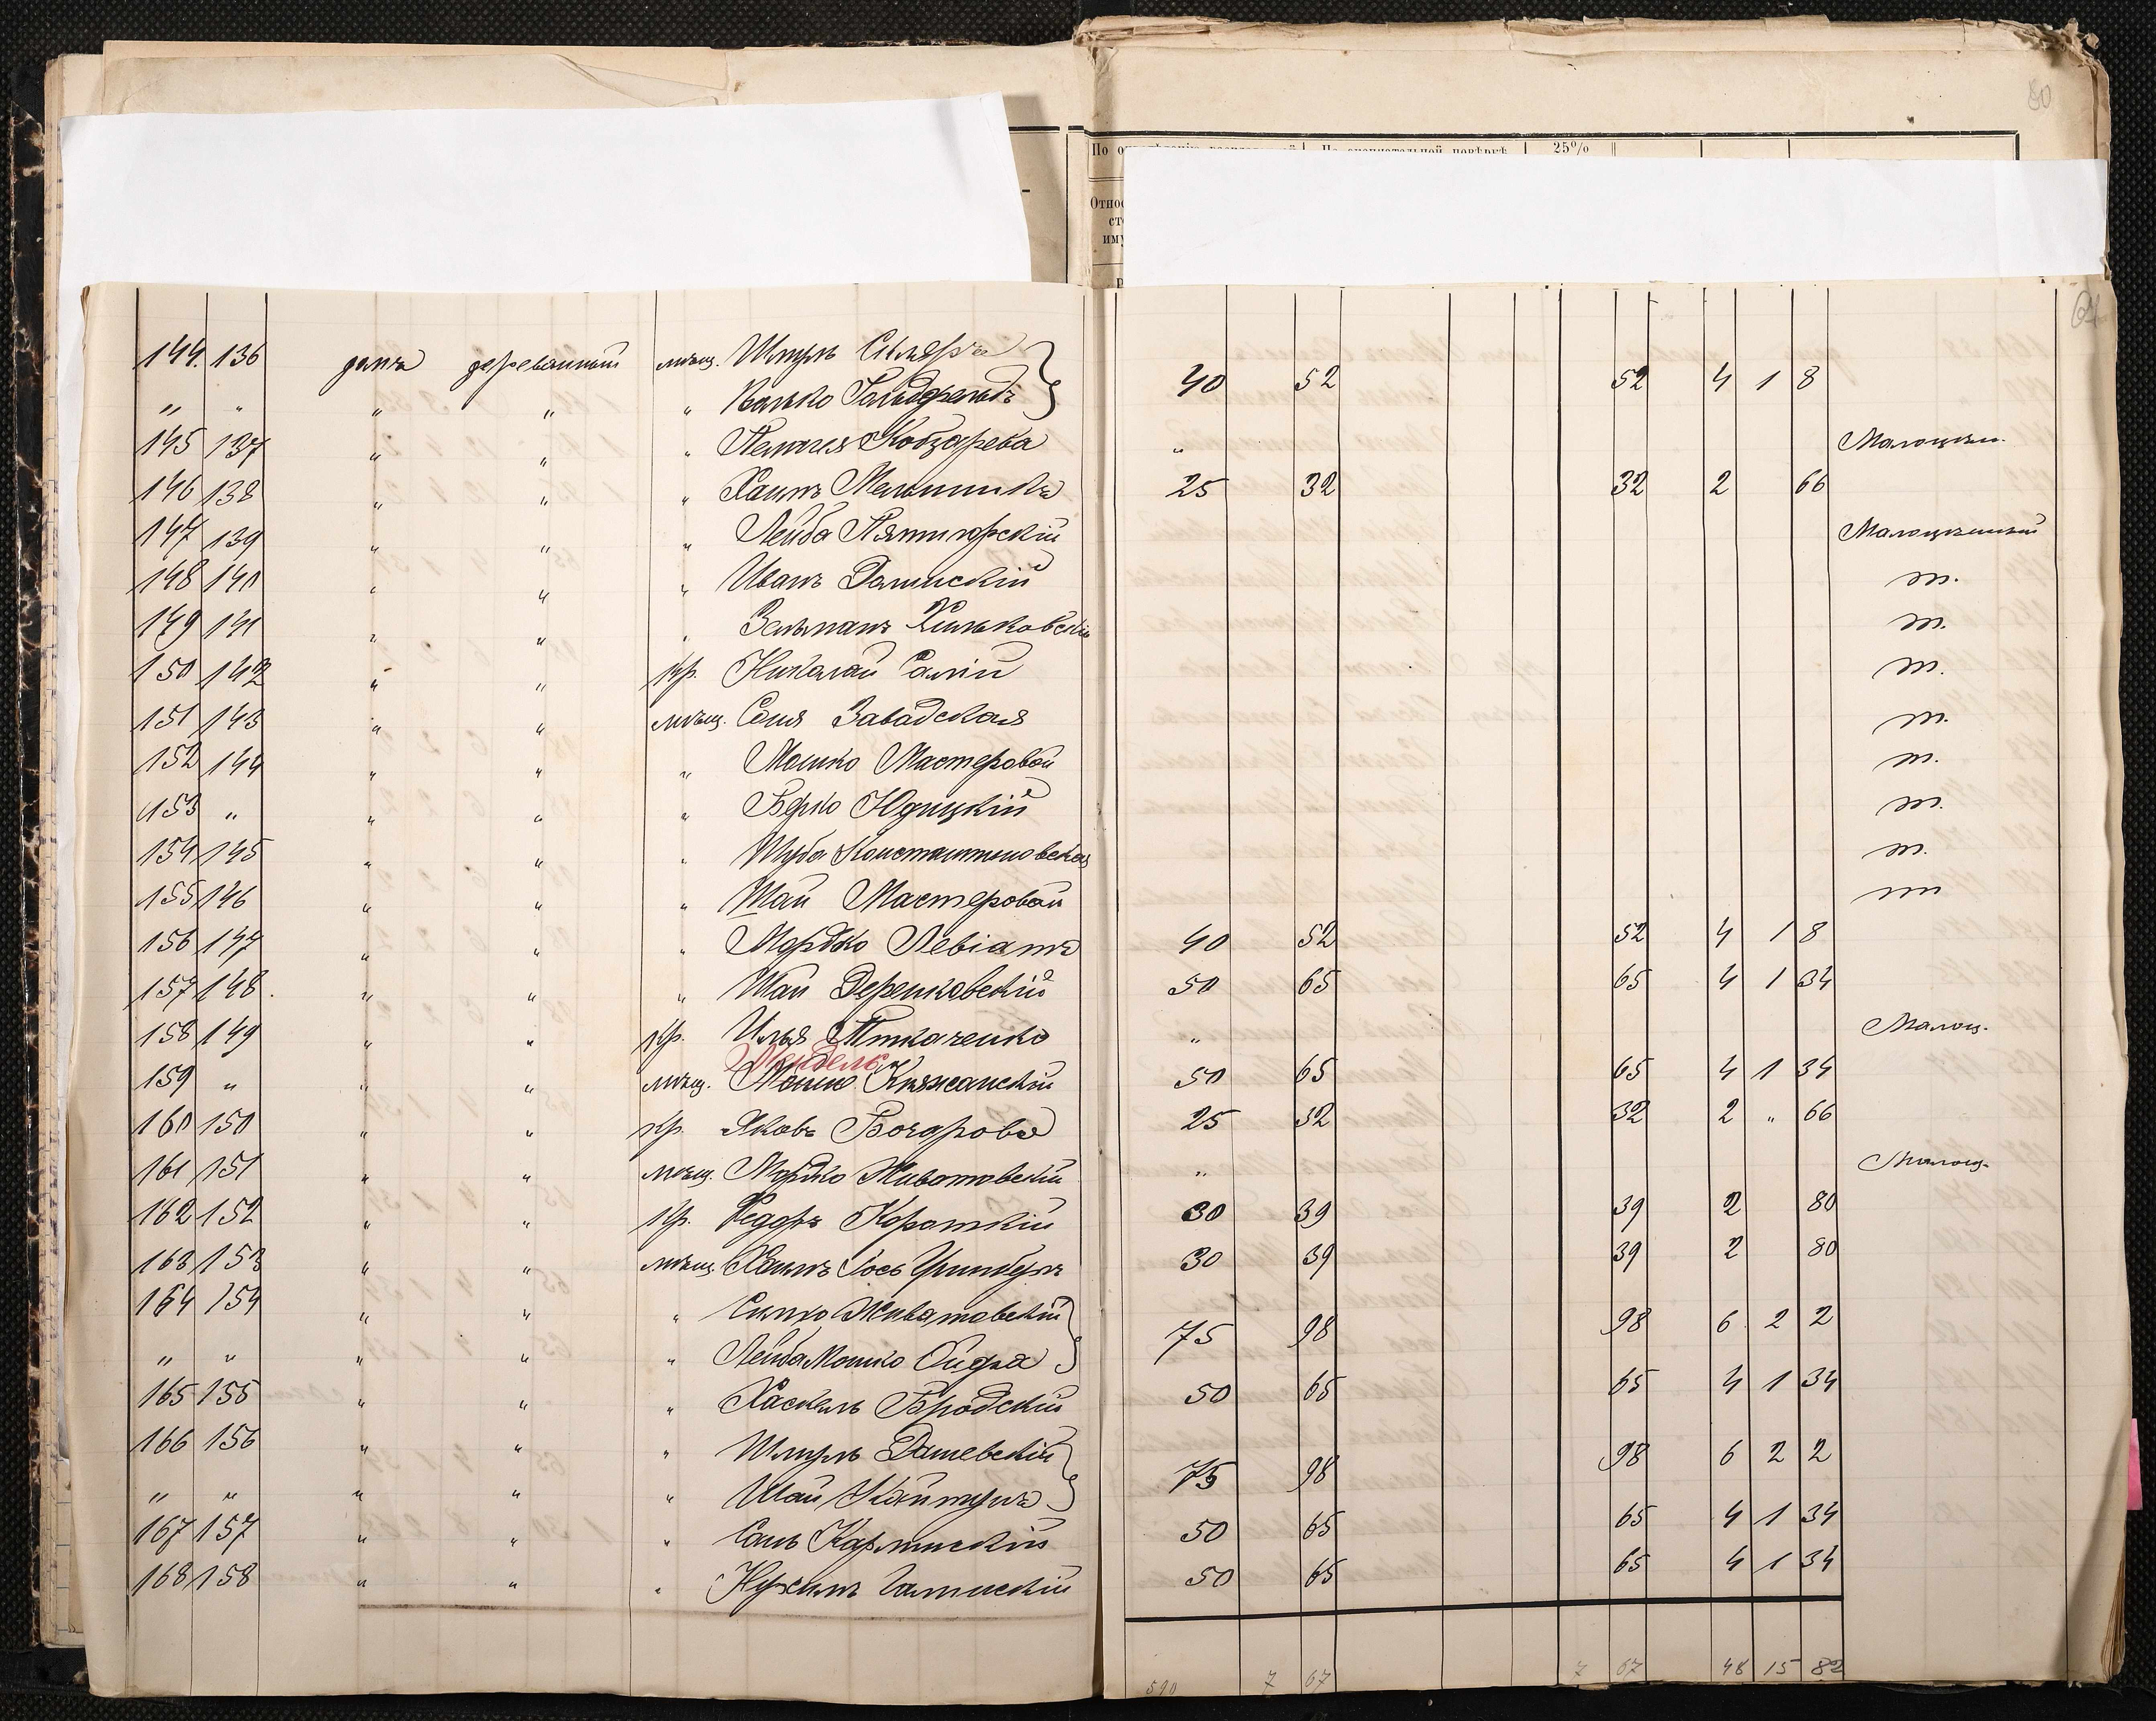 80
25%
Относ
ст
им
64
144. 136 домъ деревянный мѣщ. Шмуль Скляръ 40 52 52 4 1 8
„ „ „ „ „ Волько Гольдфельдъ
145 137 „ „ „ Пелагея Кобзарева „ Малоцѣн.
146 138 „ „ „ Хаимъ Мельникъ 25 32 32 2 66
147 139 „ „ „ Лейба Пятигорскій Малоцѣнный
148 140 „ „ „ Иванъ Галинскій т.
149 141 „ „ „ Зельманъ Хильковскій т.
150 142 „ „ кр. Николай Салій т.
151 143 „ „ мѣщ. Соня Завадская т.
152 144 „ „ „ Мошко Мастеровой т.
153 „ „ „ „ Берко Юдицкій т.
154 145 „ „ „ Шуба Константиновская т.
155 146 „ „ „ Шаи Мастеровой т
156 147 „ „ „ Мордко Левіантъ 40 52 52 4 1 8
157 148. „ „ „ Шаи Деренковскій 50 65 65 4 1 34
158 149 „ „ кр. Илья Ткаченко „ Малоц.
Мендель
159 „ „ „ мѣщ. Мошко Княжанскій 50 65 65 4 1 34
160 150 „ „ кр. Яковъ Бочаровъ 25 32 32 2 „ 66
161 151 „ „ мѣщ. Мордко Животовскій „ Малоц.
162 152 „ „ кр. Федоръ Короткій 30 39 39 2 80
163 153 „ „ мѣщ. Хаимъ Іось 30 39 39 2 80
164 154 „ „ „ Симхо Животовскій 75 98 98 6 2 2
„ „ „ „ „ Лейба Мошко
165 155 „ „ „ Хаскель Бродскій 50 65 65 4 1 34
166 156 „ „ „ Шмуль Дашевскій 75 98 98 6 2 2
„ „ „ „ „ Шаи
167 157 „ „ „ Карлинскій 50 65 65 4 1 34
168 158 „ „ „ Нухимъ Галинскій 50 65 65 4 1 34
590 7 67 7 67 48 15 82